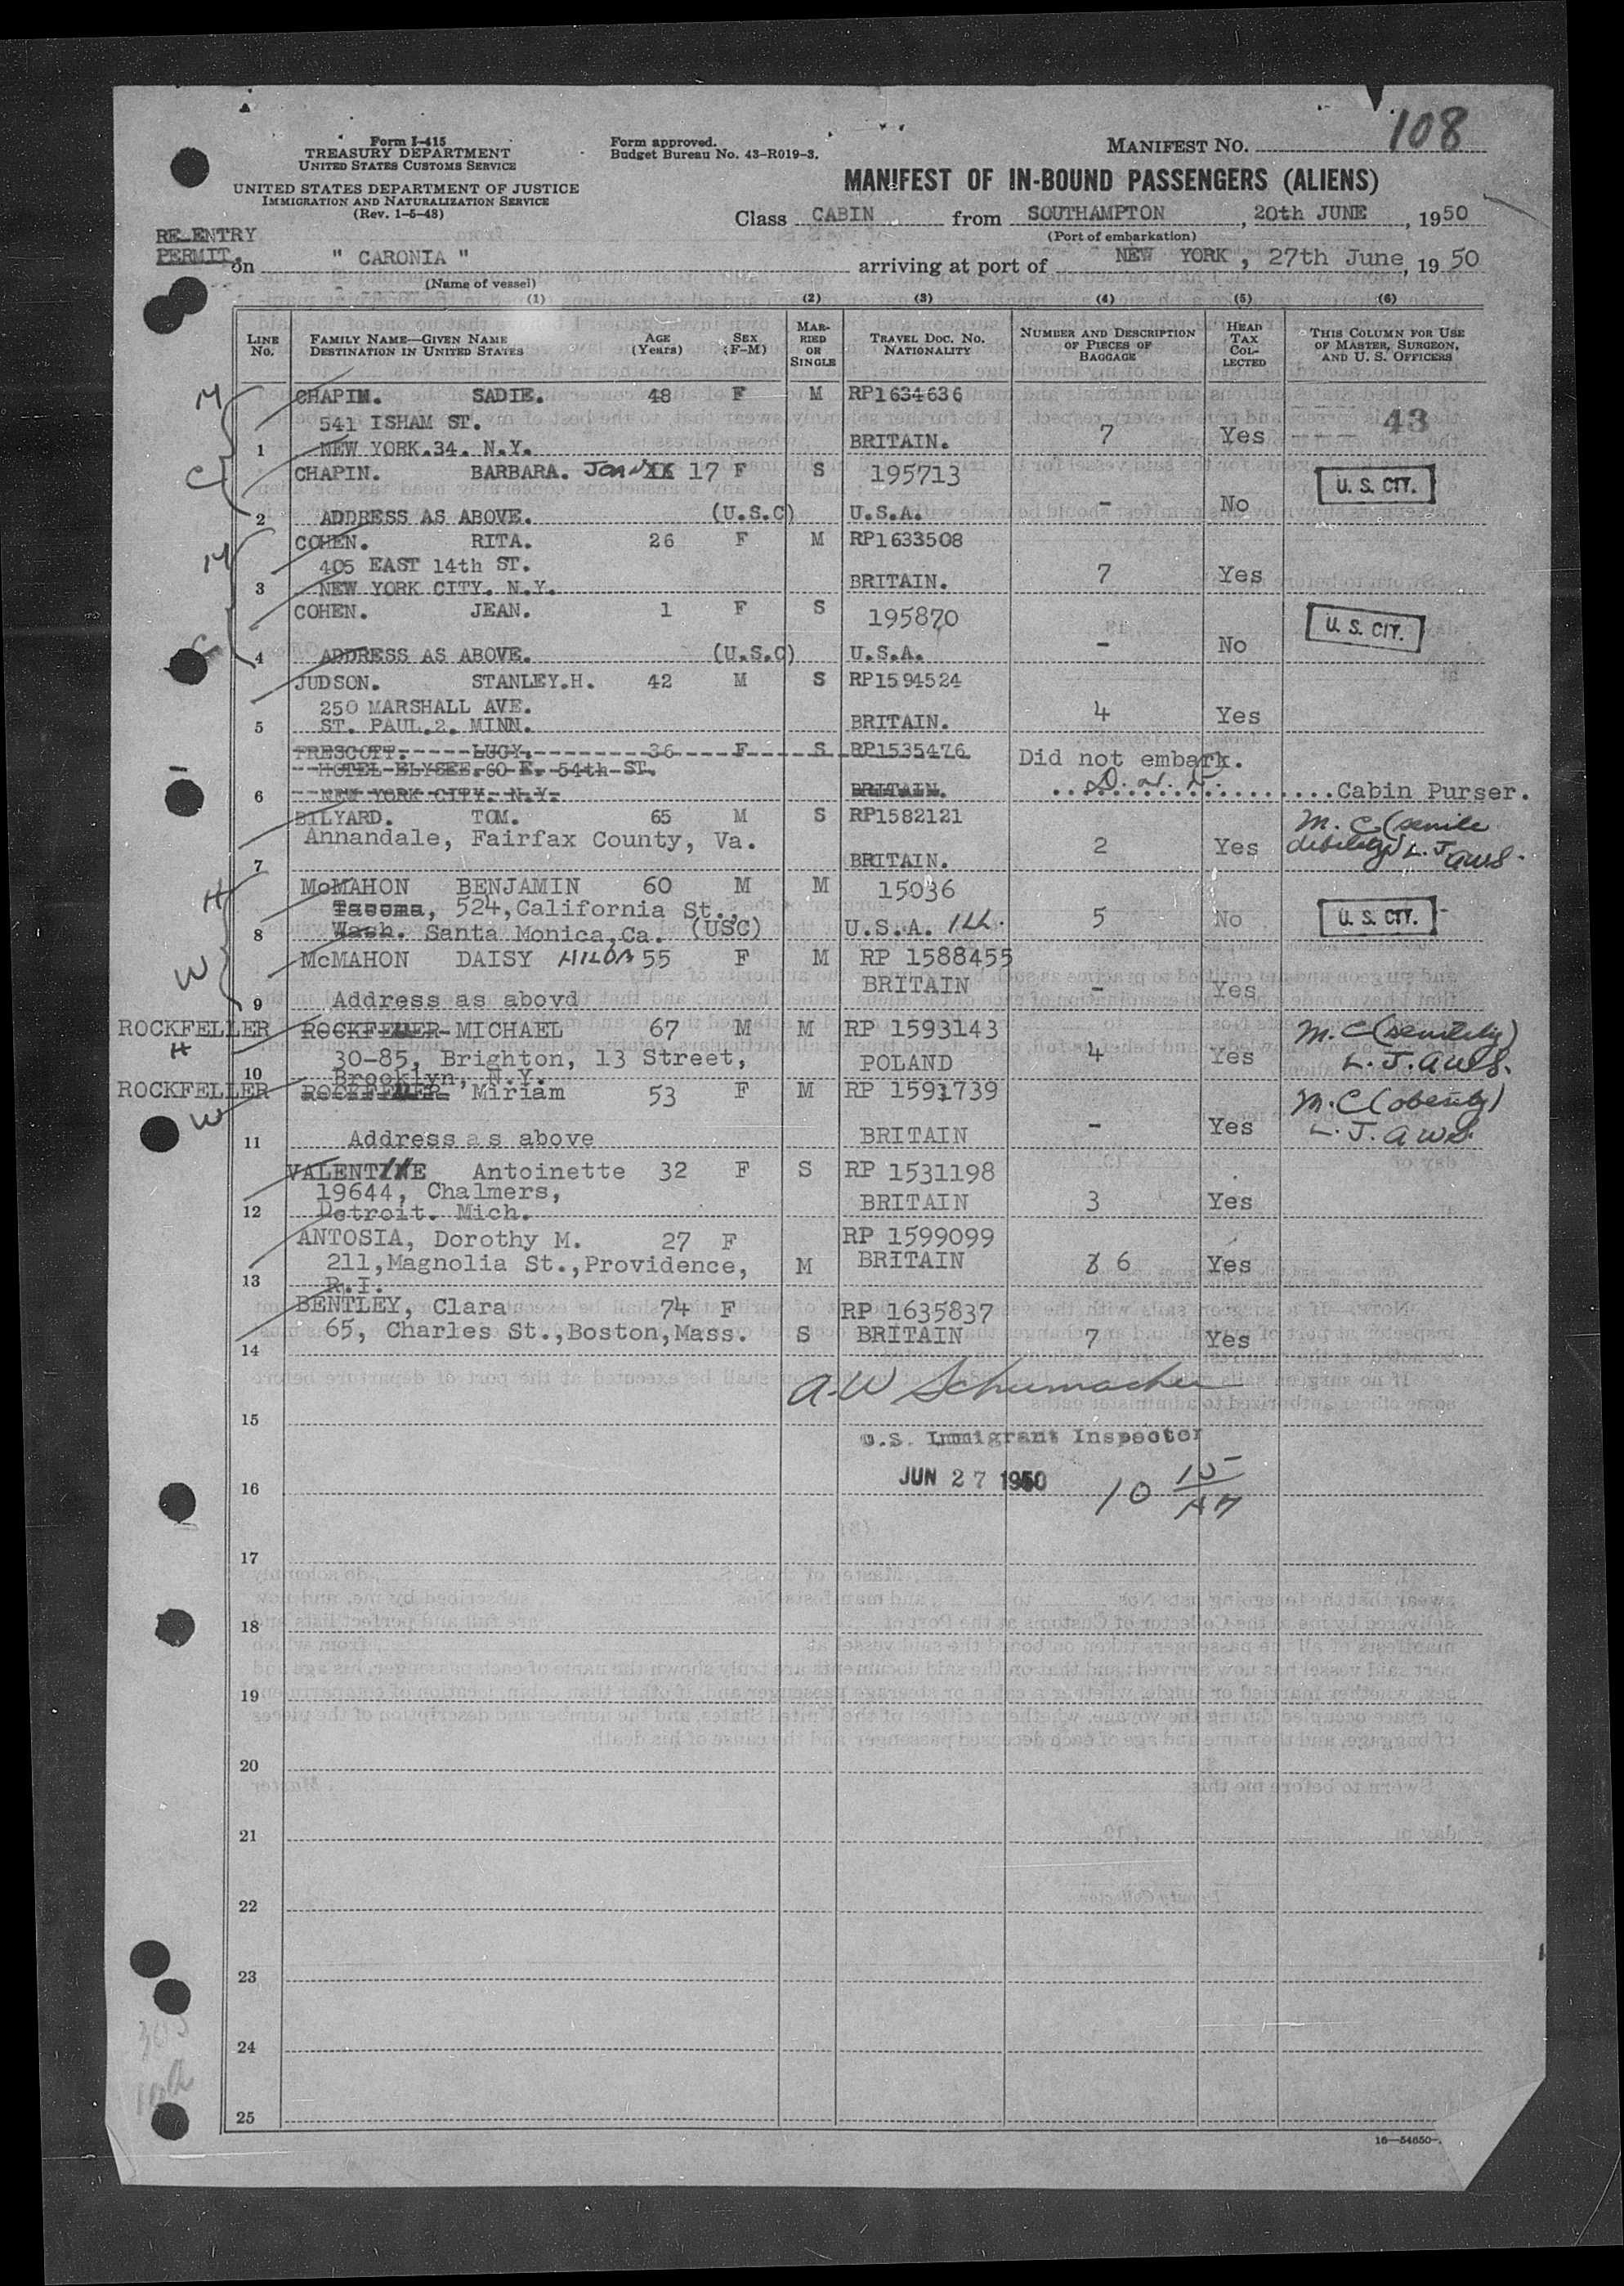 108
Form I-415
TREASURY DEPARTMENT
UNITED STATES CUSTOMS SERVICE
UNITED STATES DEPARTMENT OF JUSTICE
IMMIGRATION AND NATURALIZATION SERVICE
(Rev. 1-5-48)
Form approved.
Budget Bureau No. 43-R019-3.
MANIFEST NO.
MANIFEST OF IN-BOUND PASSENGERS (ALIENS)
Class CABIN from SOUTHAMPTON, 20th JUNE, 1950
(Port of embarkation)
RE-ENTRY
PERMIT.
on " CARONIA " arriving at port of NEW YORK, 27th June, 1950
(Name of vessel)
(1) (2) (3) (4) (5) (6)
LINE No. FAMILY NAME—GIVEN NAME DESTINATION IN UNITED STATES AGE (Years) SEX (F-M) MARRIED OR SINGLE TRAVEL DOC. NO. NATIONALITY NUMBER AND DESCRIPTION OF PIECES OF BAGGAGE HEAD TAX COLLECTED THIS COLUMN FOR USE OF MASTER, SURGEON, AND U. S. OFFICERS
M CHAPIN. SADIE. 48 F M RP1634636
541 ISHAM ST. 43
1 NEW YORK.34. N.Y. BRITAIN. 7 Yes
C CHAPIN. BARBARA. JOAN 17 F S 195713 U. S. CIT.
2 ADDRESS AS ABOVE. (U.S.C) U.S.A. - No
M COHEN. RITA. 26 F M RP1633508
405 EAST 14th ST.
3 NEW YORK CITY. N.Y. BRITAIN. 7 Yes
C COHEN. JEAN. 1 F S 195870 U. S. CIT.
4 ADDRESS AS ABOVE. (U.S.C) U.S.A. - No
JUDSON. STANLEY.H. 42 M S RP1594524
250 MARSHALL AVE.
5 ST. PAUL.2. MINN. BRITAIN. 4 Yes
PRESCOTT. LUCY. 36 F S RP1535476 Did not embark.
HOTEL ELYSEE.60 E. 54th ST.
6 NEW YORK CITY. N.Y. BRITAIN. Cabin Purser.
BILYARD. TOM. 65 M S RP1582121 M. C (senile
Annandale, Fairfax County, Va. debility) L. J. AWS.
7 BRITAIN. 2 Yes
H McMAHON BENJAMIN 60 M M 15036
Tacoma, 524, California St., 5 No U. S. CIT.
8 Wash. Santa Monica,Ca. (USC) U.S.A.
W McMAHON DAISY HILDA 55 F M RP 1588455
9 Address as abovd BRITAIN - Yes
ROCKFELLER MICHAEL 67 M M RP 1593143 M. C (senility)
H 30-85, Brighton, 13 Street, POLAND 4 Yes L. J. AWS.
10 Brooklyn, N.Y.
ROCKFELLER Miriam 53 F M RP 1591739 M. C (obesity)
W L. J. AWS.
11 Address as above BRITAIN - Yes
VALENTINE Antoinette 32 F S RP 1531198
19644, Chalmers,
12 Detroit. Mich. BRITAIN 3 Yes
ANTOSIA, Dorothy M. 27 F RP 1599099
211,Magnolia St.,Providence, M BRITAIN 6 Yes
13 R.I.
BENTLEY, Clara 74 F RP 1635837
65, Charles St.,Boston,Mass. S BRITAIN 7 Yes
14
A. W Schumacher
15
U.S. Immigrant Inspector
16 JUN 27 1950 10 15 AM
17
18
19
20
21
22
23
24
25
16—54650-